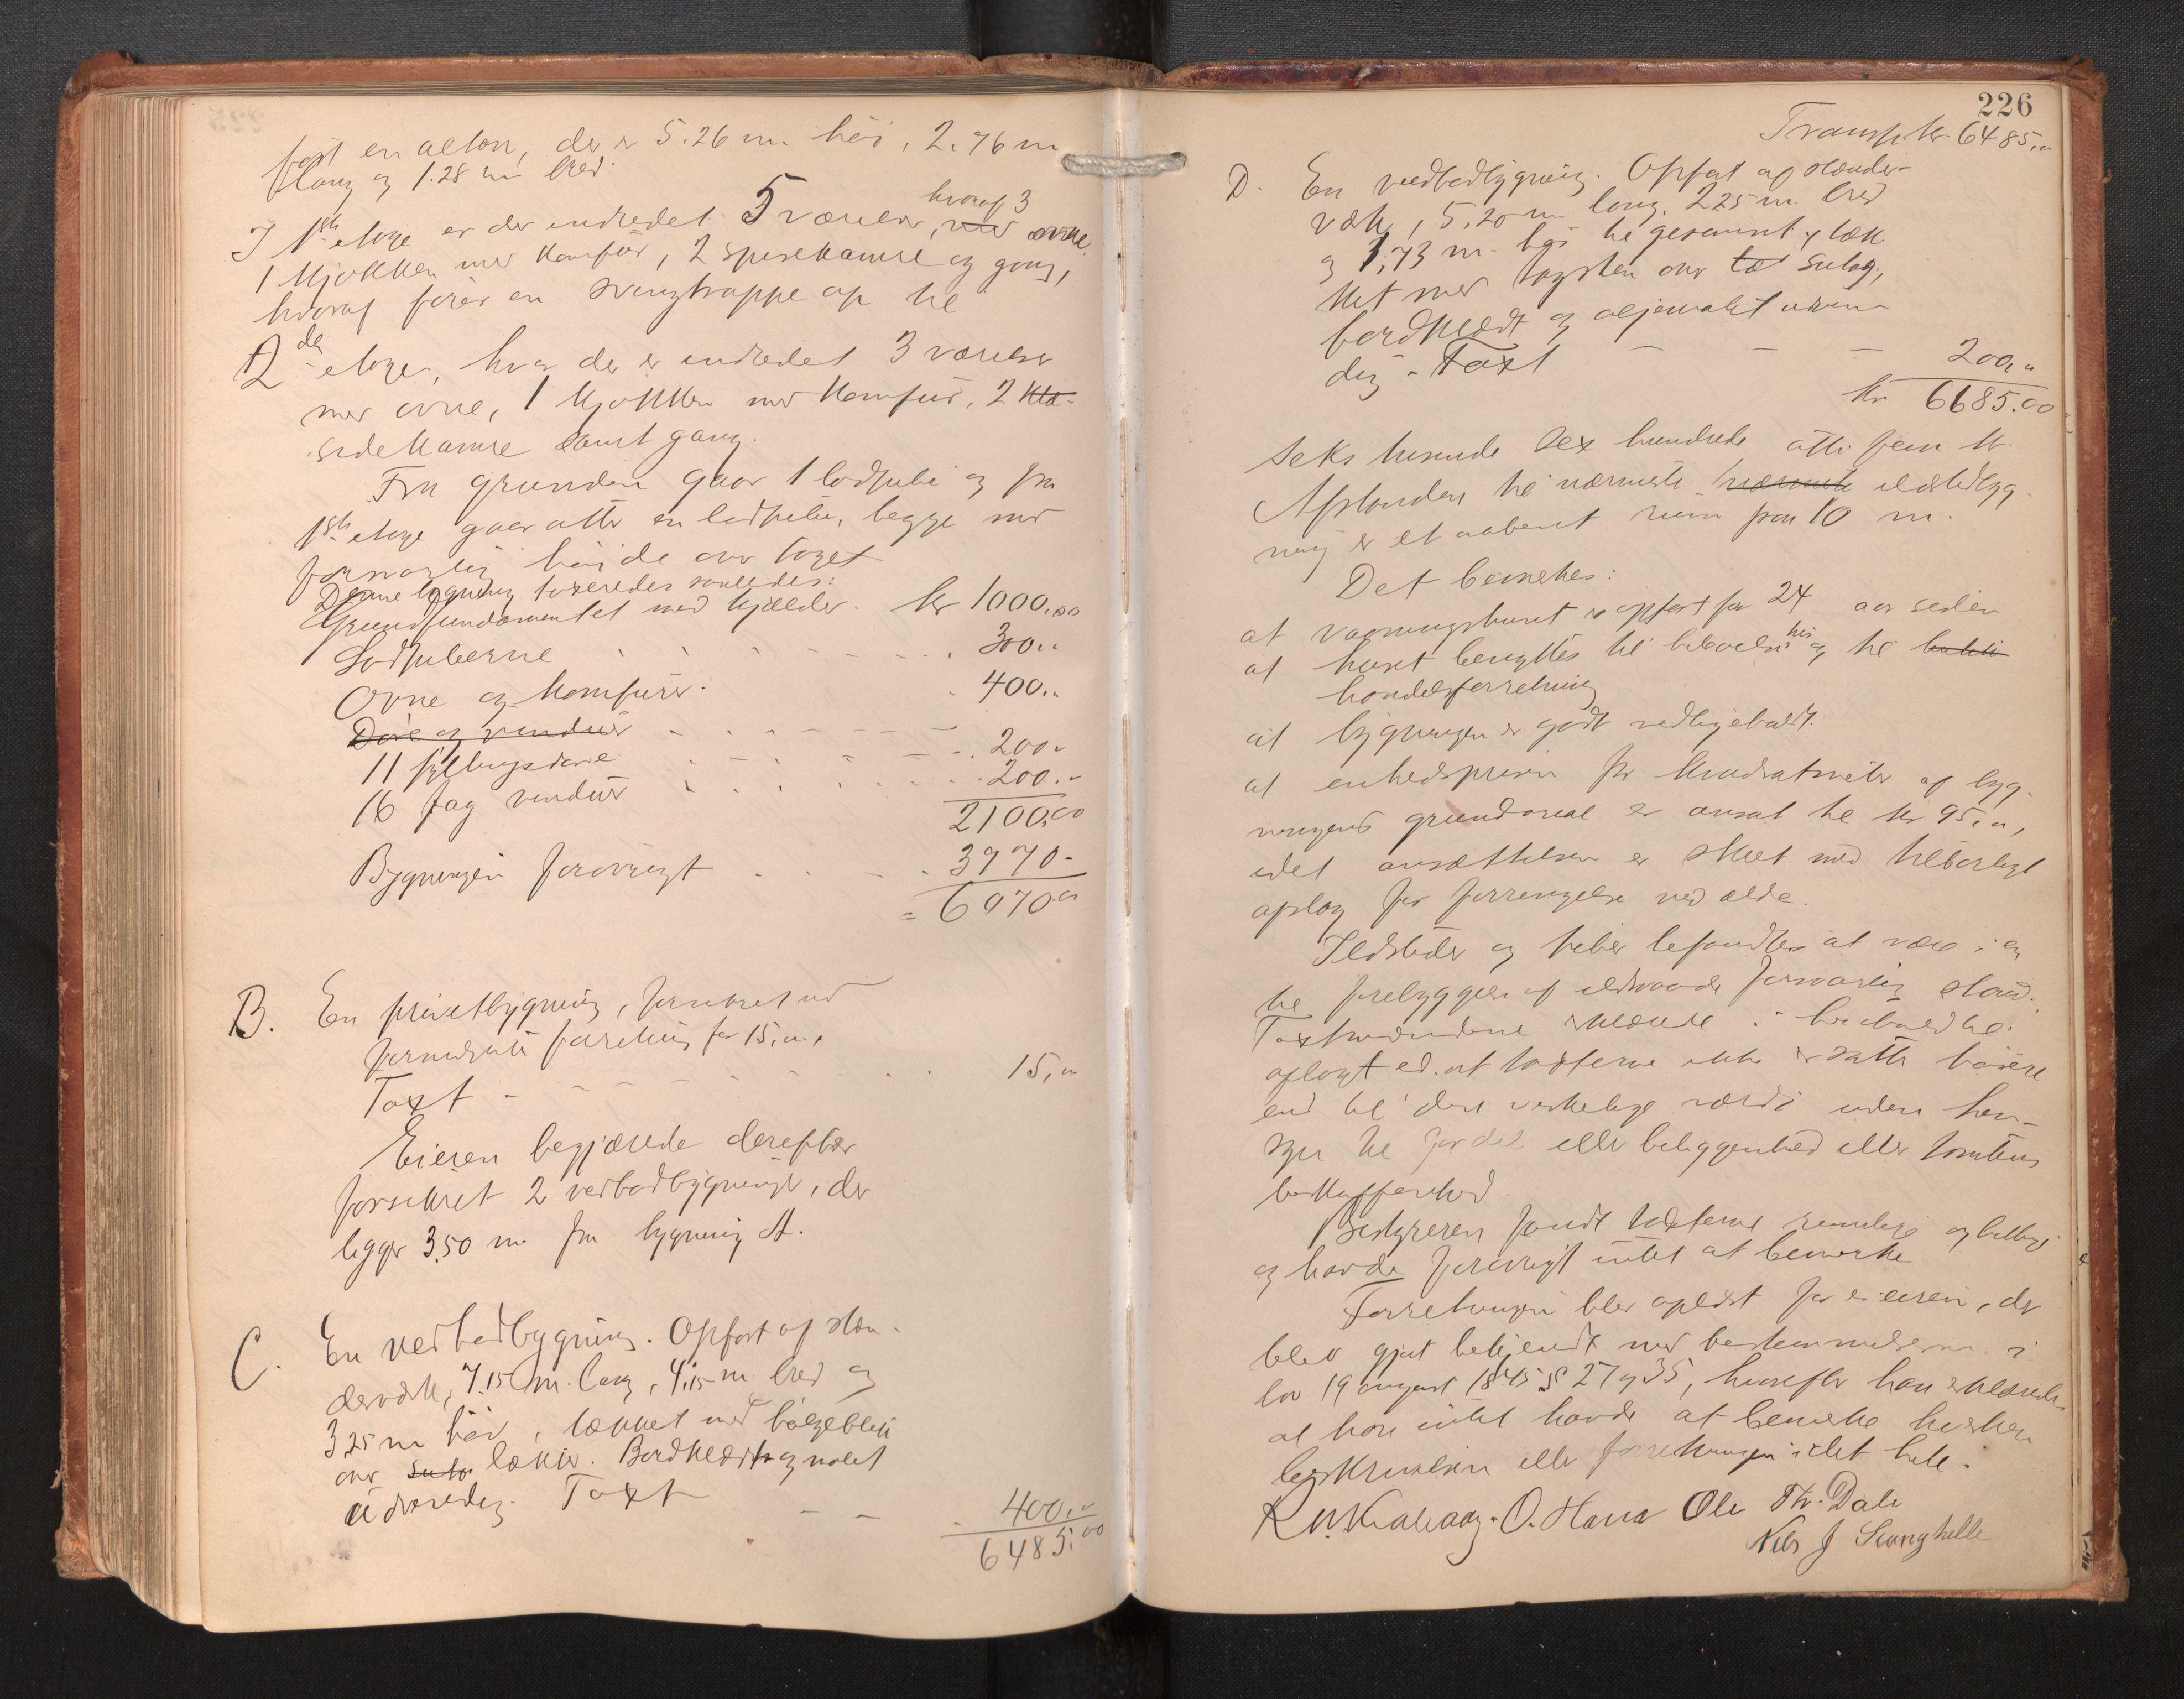 fast en altan, der er 5.26 m. höi, 2.76 m
lang og 1.28 m bred.
hvoraf 3
I 1ste etage er der indredet 5 værelser, med ovne
1 kjøkken med komfur, 2 spisekamre og gang,
hvoraf fører en svingtrappe op til
2den etage, hvor der er indredet 3 værelser
med ovne, 1 kjøkken med komfur, 2 kla-
sidekamre samt gang.
Fra grunden gaar 1 lodpibe og fra
1ste etage gaar atter en lodpibe, begge med
forsvarlig höide over taget
Denne bygning taxeredes saaledes:
Grundfundamentet med kjælder. kr 1000,00
Lodpiberne 300,,
Ovne og komfurer 400,,
Döre og vinduer
11 fyllingsdøre 200,-
16 fag vinduer 200,-
2100,00
Bygningen forøvrigt 3970-
= 6070,00
B. En privetbygning, forsikret ved
forrige forretning for 15,00,
Taxt - 15,00
Eieren begjærede derefter
forsikret 2 vedbodbygninger, der
ligger 3.50 m fra bygning A.
C. En vedbodbygning. Opført af stæn-
derværk, 7.15 m. lang, 4.15 m bred og
3.25 m höi, tækket med bølgeblik
over suta lækter. Bordklædt og malet
udvendig. Taxt - - 400,-
6485,00
226
Transp. kr 6485,00
D. En vedbodbygning. Opført af stænder-
værk, 5,20 m lang, 2.25 m. bred
og 1,73 m. höi til gesimset, tæk-
ket med tagsten over tæ sutag,
bordklædt og oljemalet udven-
dig - Taxt - - - 200,,
kr 6685.00
Seks tusende sex hundrede otti fem kr.
Afstanden til nærmeste nærmeste ildstedbyg-
ning er et aabent rum paa 10 m.
Det bemerkes:
at vaaningshuset er opført for 24 aar siden
at huset benyttes til beboelseshus og til butik
handelsforretning
at bygningen er godt vedligeholdt.
at enhedsprisen pr. kvadratmeter af byg-
ningens grundareal er ansat til kr 95,00,
idet ansættelsen er skeet med tilbørligt
afslag for forringelse ved ælde.
Ildsteder og piber befandtes at være i en
til forebyggelse af ildsvaade forsvarlig stand.
Taxtmændene erklærede i henhold til
aflagt ed. at taxterne ikke er satte høiere
end til den virkelige værdi uden hen-
syn til fordel eller beliggenhed eller tomtens
beskaffenhed
Bestyreren fandt taxterne rimelige og billige
og havde forøvrigt intet at bemerke
Forretningen blev oplæst for eieren, der
blev gjort bekjendt med bestemmelserne i
lov 19 august 1845 § 27 og 35, hvorefter han erklærede
at han intet havde at bemerke hverken
beskrivelsen eller forretningen i det hele.
O. Hana Ole Th. Dale
Nils J